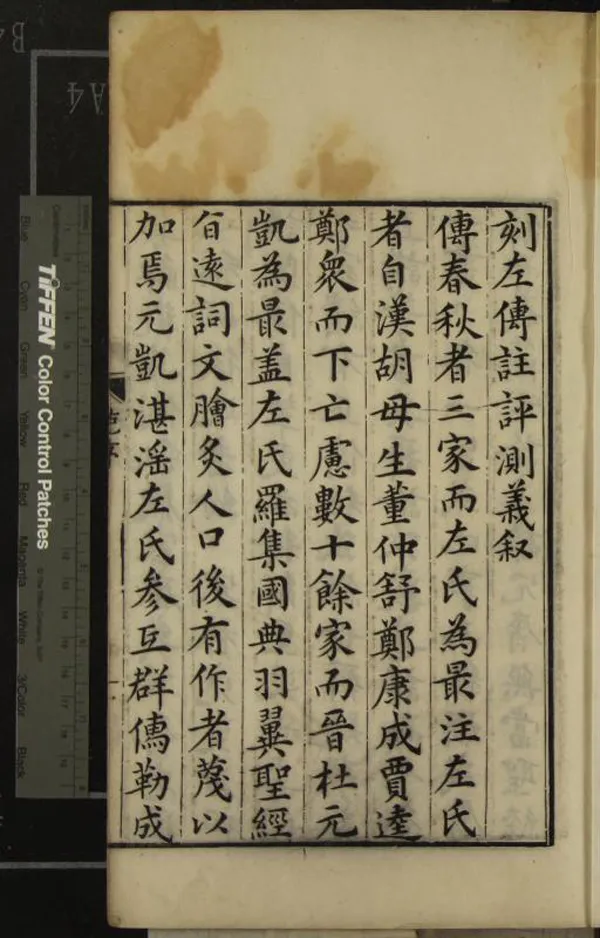 刻左傳註評測義叙
傳春秋者三家而左氏為最注左氏
者自漢胡毋生董仲舒鄭康成賈逵
鄭衆而下亡慮數十餘家而晉杜元
凱為最盖左氏羅集國典羽翼聖經
㫖遠詞文膾炙人口後有作者蔑以
加焉元凱湛滛左氏參互群儁勒成
序
A4
TIFFEN Color Control Patches
Blue
Cyan
Green
Yellow
Red
Magenta
White
3/Color
Black